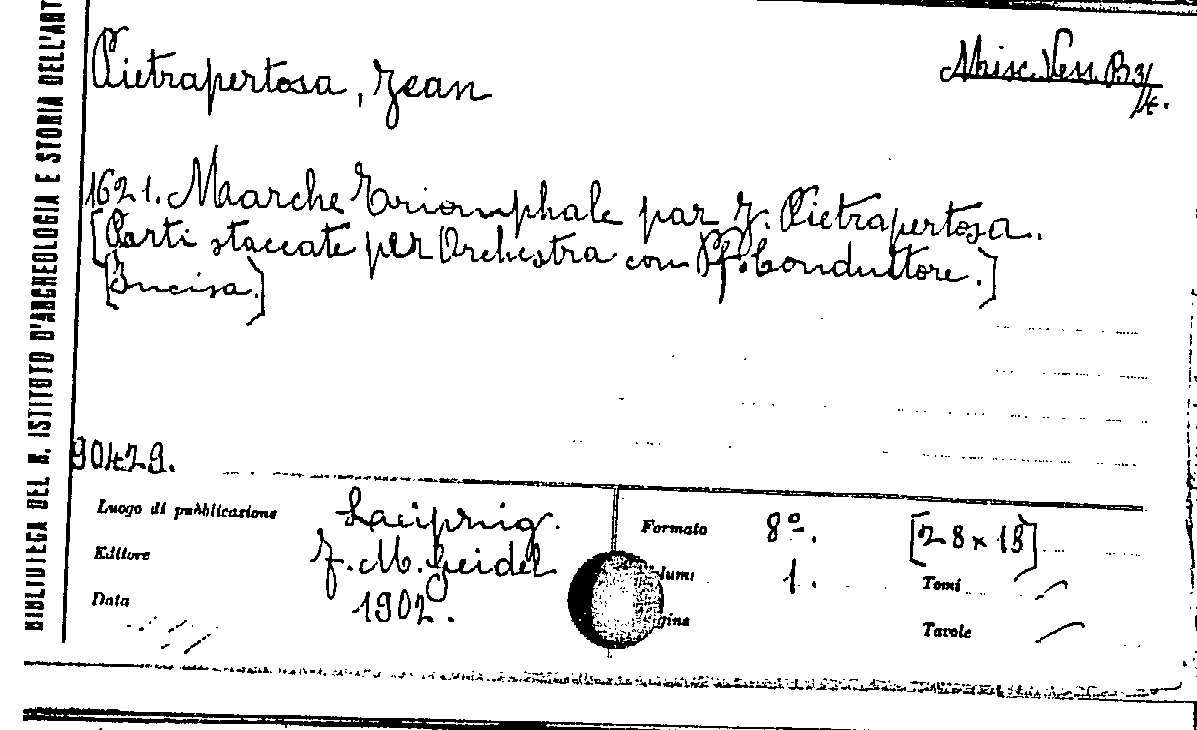 BIBLIOTECA DEL R. ISTITUTO D'ARCHEOLOGIA E STORIA DELL'ART
Pietrapertosa, Jean
Misc. Vess. B 3/4.
1621. Marche Triomphale par J. Pietrapertosa.
[Parti staccate per Orchestra con Pf. Conduttore.]
[Incisa.]
90429.
Luogo di pubblicazione
Formato 8º. [28 x 18]
Editore J. M. Geidel
lumi 1. Tomi
Data 1902.
gine
Tavole